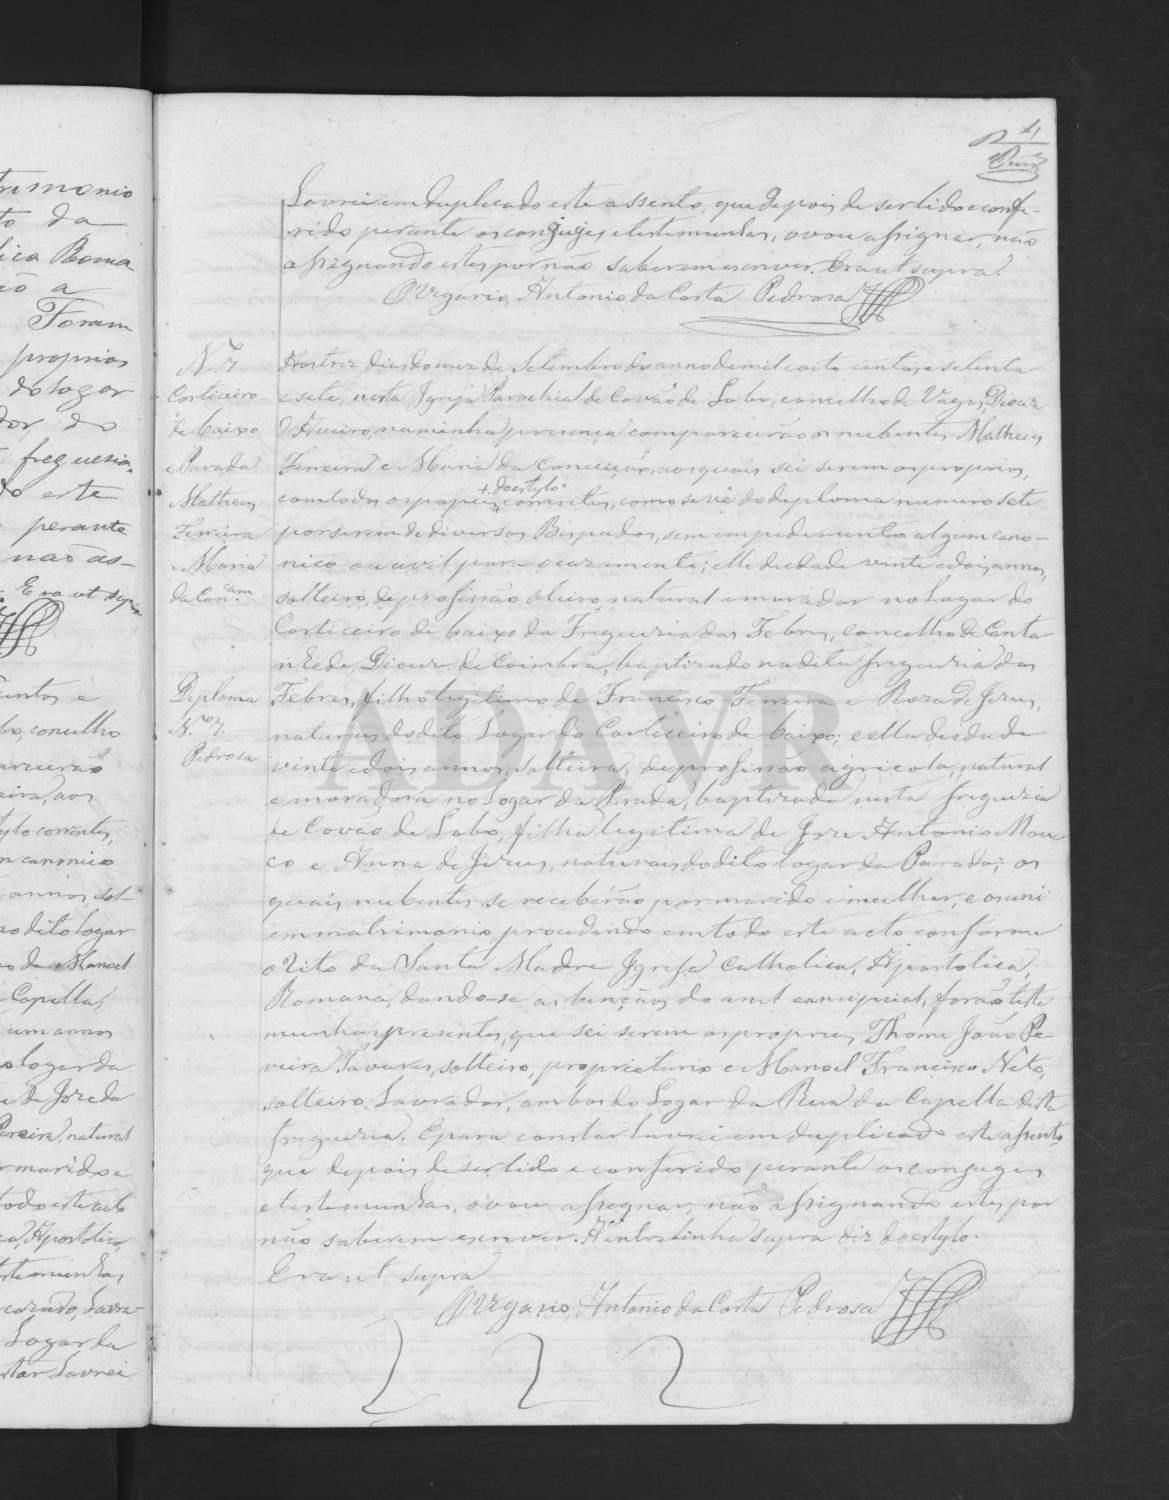 trimonio
to da
ica Roma
ão a
Foram
proprios
do logar
dor, do
freguesia
do este
perante
nao as-
Era ut supra
4
Lavrei em duplicado este assento, que depois de ser lido e confe-
rido perante os conjuges, e testemunhas, o vou assignar, não
assignando estes por não saberem escrever. Era ut supra.
O Vigario, Antonio da Costa Pedrosa
N. 7
Corticeiro
de baixo
e Parada
Matheus
Ferreira
e Maria
da Concam
Aos trez dias do mez de Setembro do anno de mil e oito centos e setenta
e sete, nesta Igreja Parochial de Covão de Lobo, concelho de Vagos, Dioceze
d'Aveiro, na minha presença comparecerão os nubentes Matheus
Ferreira e Maria da Conceição, aos quais sei serem os proprios,
+ do estylo
com todos os papeis correntes, como se vê do deploma numero sete
por serem de diversos Bispados, sem impedimento algum cano-
nico ou civil para o cazamento; elle de edade vinte e dois annos,
solteiro, de profissão oleiro, natural e morador no Logar do
Corticeiro de baixo da Freguezia das Febres, concelho de Canta-
nhede, Dioceze de Coimbra, baptizado na dita freguezia das
Febres, filho legitimo de Francisco Ferreira e Roza de Jezus,
naturaes do dito Logar do Corticeiro de baixo; e ella de edade
vinte e dois annos, solteira, de profissão agricola, natural
e moradora no Logar da Parada, baptizada nesta freguezia
de Covão de Lobo, filha legitima de Joze Antonio Mou-
co e Anna de Jezus, naturais do dito logar da Parada; os
quais nubentes se receberão por marido e mulher, e os uni
em matrimonio procedendo em todo este acto conforme
o Rito da Santa Madre Igreja Catholica, Apostolica,
Romana, dando-se as bençãos do anel, forão teste
munhas presentes, que sei serem os proprios, Thome João Pe-
reira Tavares, solteiro, proprietario e Manoel Francisco Neto,
solteiro, Lavrador, ambos do Logar da Rua da Capella desta
freguezia. E para constar lavrei em duplicado este assento,
que depois de ser lido e conferido perante os conjuges
e testemunhas, o vou assignar, não assignando estes por
não saberem escrever. A'entrelinha supra diz do estylo.
Era ut supra
O Vigario, Antonio da Costa Pedrosa
Diploma
N.ro 7.
Pedrosa
ADAVR
untos e
bo, concelho
arecerão
aira, aos
tylo correntes,
m canonico
annos, sol-
no dito logar
o de Manoel
Capella,
um annos
o logar da
e de Joze da
Pereira, natural
r marido e
todo este acto
ca, Apostolica,
testemunhas
cazado, Lavra-
Logar da
star Lavrei